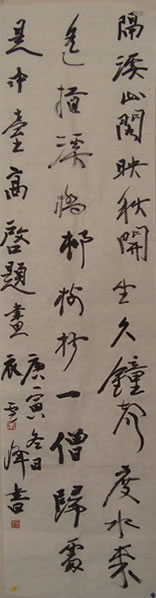 隔溪山閣映秋開坐久鐘聲度水来
遙指溪橋邨樹杪一僧歸處
是中臺高啓題畫
庚寅冬日
衣雪峰書